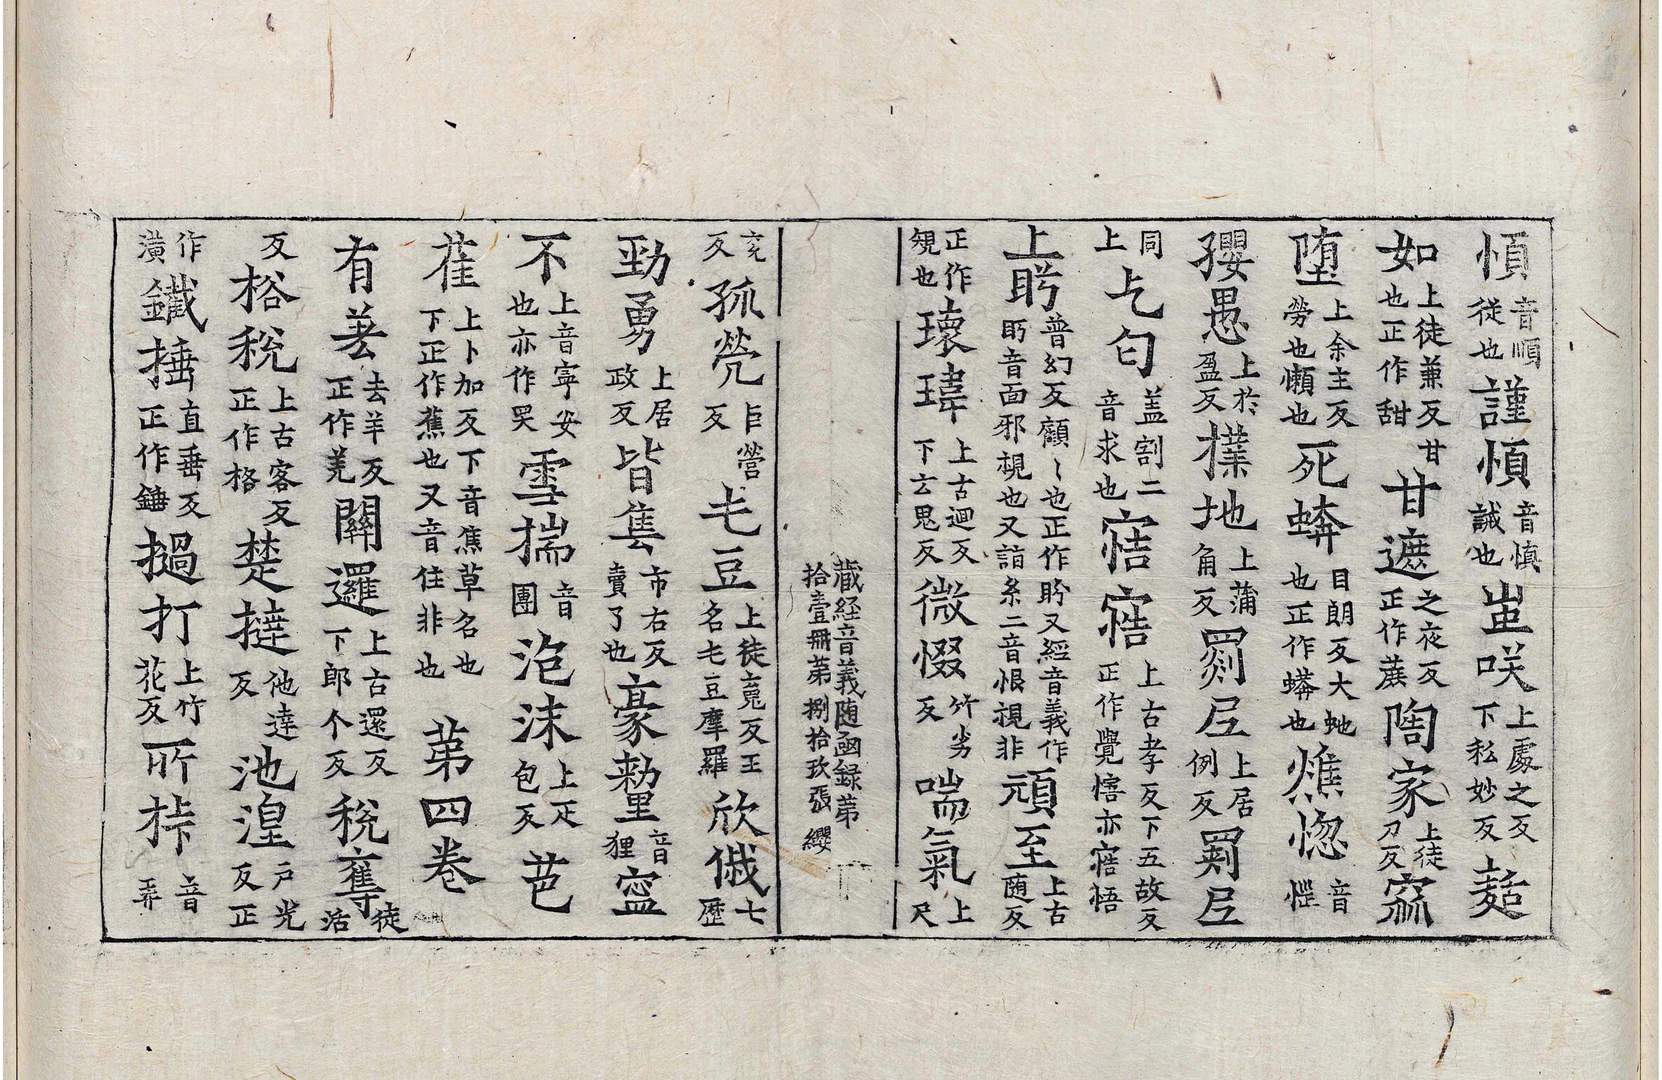 愩音順從也謹愼音慎誡也蚩咲上處之反下私妙反䭆
如上徒兼反甘也正作甜甘遮之夜反正作蔗陶家上徒刀反窳
墮上余主反勞也懶也死蟒目朗反大虵也正作蟒也憔惚音惺
孾愚上於盈反撲地上蒲角反罽㞐上居例反罽㞐
同上乞匂盖割二音求也寤寤上古孝反下五故反正作覺悎亦寤悟
上眄普幻反顧〻也正作盻又經音義作眄音面邪視也又詣系二音恨視非頑至上古随反
正作䂓也瓌瑋上古迴反下玄鬼反微惙竹劣反喘氣上尺
藏經音義随函録苐
拾壹冊苐捌拾玖張 纓
兖反孤煢巨營反𠦑豆上徒嵬反王名𠦑豆摩羅欣俄七歷
勁勇上居政反皆售市右反賣了也豪𠢠音狸寍
不上音寧安也亦作哭雪揣音團泡沫上疋包反芭
萑上卜加反下音焦草名也下正作蕉也又音住非也 苐四卷
有羌去羊反正作羌關邏上古還反下郎个反稅奪徒活
反格稅上古客反正作格楚撻他達反池湟戶光反正
作潢鐵捶直垂反正作錘撾打上竹花反所桛音弄